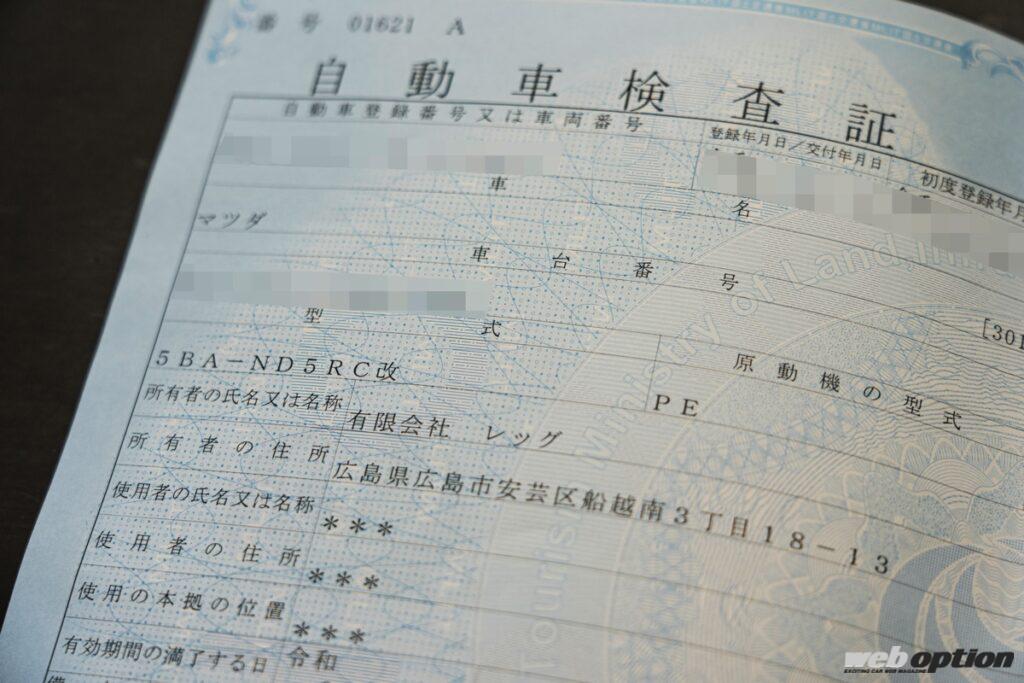 番号 01621 A
自動車検査証
自動車登録番号又は車両番号 登録年月日／交付年月日 初度登録年月
車名
マツダ
車台番号
[301
型式 原動機の型式
5BA-ND5RC改 PE
所有者の氏名又は名称 有限会社 レッグ
所有者の住所 広島県広島市安芸区船越南3丁目18-13
使用者の氏名又は名称 ＊＊＊
使用者の住所 ＊＊＊
使用の本拠の位置 ＊＊＊
有効期間の満了する日 令和
備
Ministry of Land
Tourism
web option
EXCITING CAR WEB MAGAZINE